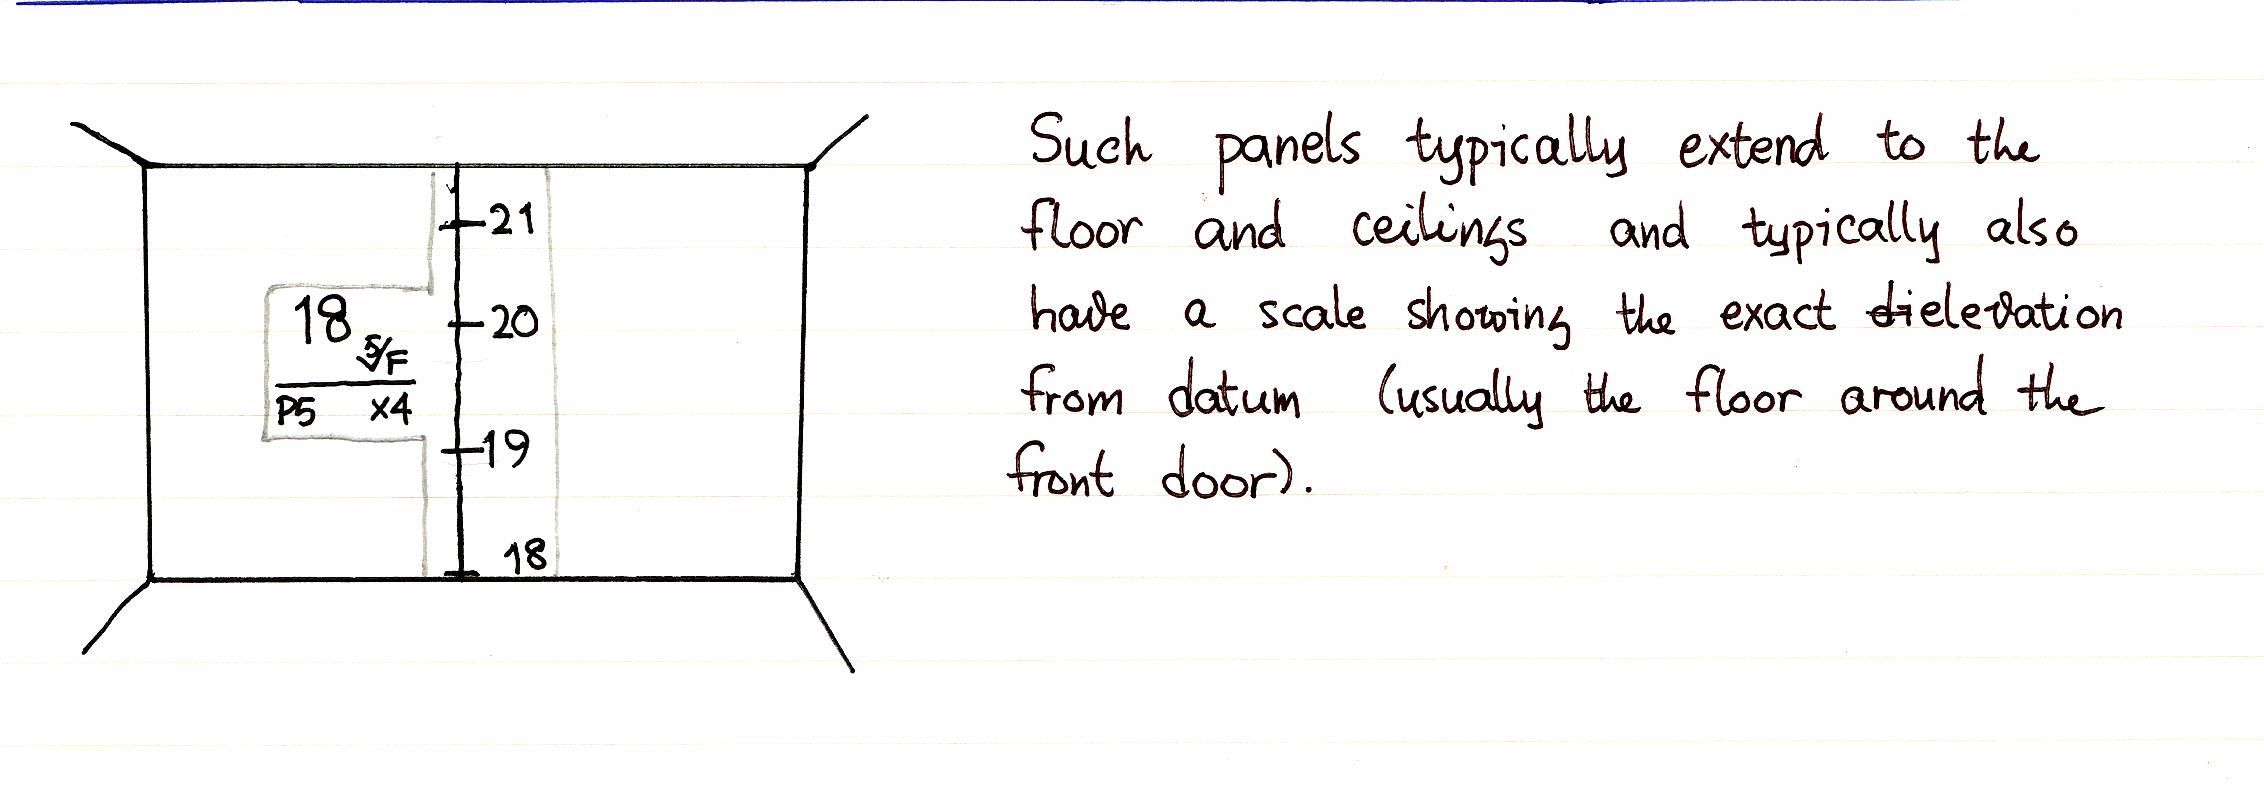 21
18
5/F
20
P5 x4
19
18
Such panels typically extend to the
floor and ceilings and typically also
have a scale showing the exact elevation
from datum (usually the floor around the
front door).